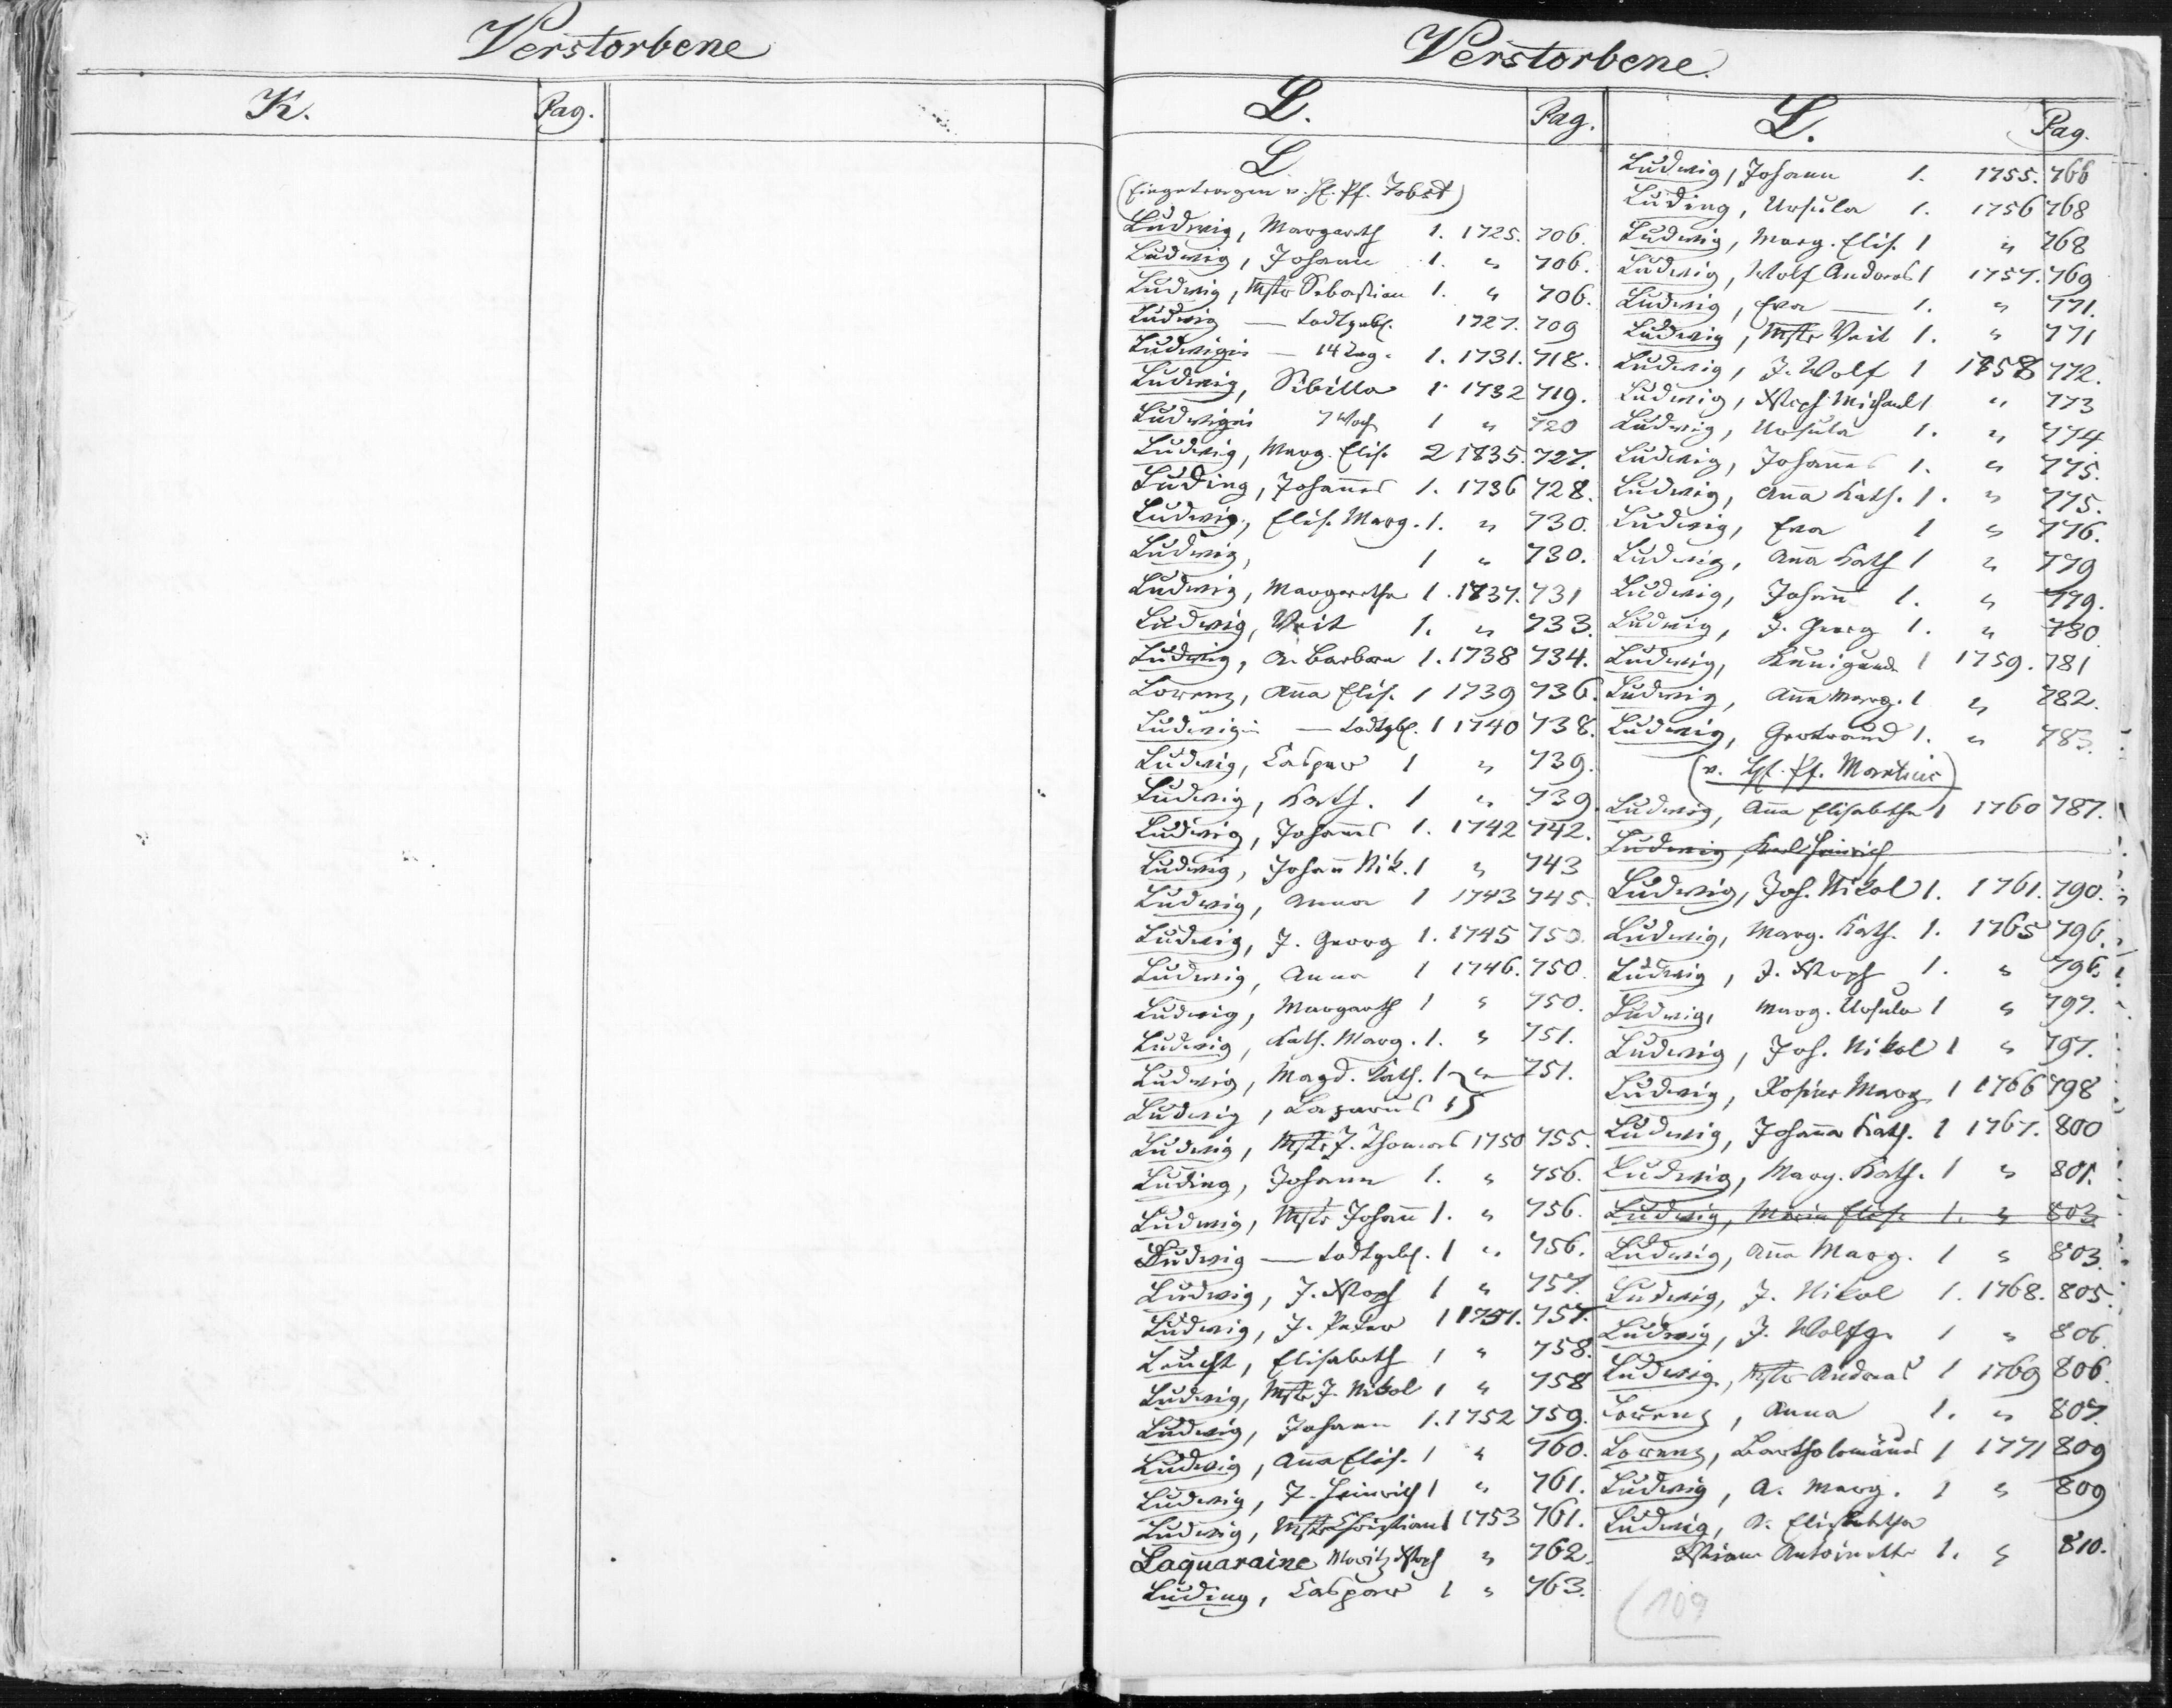 Verstorbene
K. Pag.
Verstorbene.
L. Pag.
L
(Eingetragen v. H. Pf. Jobst)
Ludwig, Margareth 1. 1725. 706.
Ludwig, Johann 1. " 706.
Ludwig, Mstr Sebastian 1. " 706.
Ludwig — todtgeb. 1727. 709
Ludwigin — 14 Tag. 1. 1731. 718.
Ludwig, Sibilla 1 1732 719.
Ludwigin 7 Woch 1 " 720
Ludwig, Marg. Elis. 2 1835. 727.
Luding, Johannes 1. 1736 728.
Ludwig, Elis. Marg. 1. " 730.
Ludwig, 1 " 730.
Ludwig, Margaretha 1. 1737. 731
Ludwig, Veit 1. " 733.
Ludwig, A. Barbara 1. 1738 734.
Lorenz, Anna Elis. 1 1739 736.
Ludwigin — todtgb. 1 1740 738.
Ludwig, Caspar 1 " 739.
Ludwig, Kath. 1 " 739.
Ludwig, Johannes 1. 1742 742.
Ludwig, Johann Nik. 1 " 743
Ludwig, Anna 1 1743 745.
Ludwig, J. Georg 1. 1745 750.
Ludwig, Anna 1 1746. 750.
Ludwig, Margareth 1 " 750.
Ludwig, Kath. Marg. 1. " 751.
Ludwig, Magd. Kath. 1 " 751.
Ludwig, Lazarus 1
Ludwig, Mstr J. Thomas 1750 755.
Luding, Johann 1. " 756.
Ludwig, Mstr Johann 1. " 756.
Ludwig — todtgeb. 1 " 756.
Ludwig, J. Xstoph 1 " 757.
Ludwig, J. Peter 1 1751. 757.
Leucht, Elisabeth 1 " 758.
Ludwig, Mstr J. Nikol 1 " 758
Ludwig, Johann 1. 1752 759.
Ludwig, Anna Elis. 1 " 760.
Ludwig, J. Heinrich 1 " 761.
Ludwig, Mstr Christian 1 1753 761.
Laquaraine Moritz Xstoph " 762.
Luding, Caspar 1 " 763.
L. Pag.
Ludwig, Johann 1. 1755. 766
Luding, Ursula 1. 1756 768
Ludwig, Marg. Elis. 1 " 768
Ludwig, Wolf Andreas 1 1757. 769
Ludwig, Eva — 1. " 771.
Ludwig, Mstr Veit 1. " 771
Ludwig, J. Wolf 1 1758 772.
Ludwig, Xstoph Michael 1 " 773
Ludwig, Ursula 1. " 774.
Ludwig, Johannes 1. " 775.
Ludwig, Anna Kath. 1. " 775.
Ludwig, Eva 1 " 776.
Ludwig, Anna Kath 1 " 779
Ludwig, Johann 1. " 779.
Ludwig, J. Georg 1. " 780.
Ludwig, Kunigunda 1 1759. 781
Ludwig, Anna Marg. 1 " 782.
Ludwig, Gertraud 1. " 783.
(v. H. Pf. Martius)
Ludwig, Anna Elisabetha 1 1760 787.
Ludwig, Karl Heinrich
Ludwig, Joh. Nikol 1. 1761. 790.
Ludwig, Marg. Kath. 1. 1765 796.
Ludwig, J. Xstoph 1. " 796.
Ludwig, Marg. Ursula 1 " 797.
Ludwig, Joh. Nikol 1 " 797.
Ludwig, Rosina Marg 1 1766 798
Ludwig, Johanna Kath. 1 1767. 800
Ludwig, Marg. Kath. 1 " 801.
Ludwig, Maria Elis. 1. " 803
Ludwig, Anna Marg. 1 " 803.
Ludwig, J. Nikol 1. 1768. 805.
Ludwig, J. Wolfg. 1 " 806.
Ludwig, Mstr Andreas 1 1769 806.
Lorenz, Anna 1. " 807.
Lorenz, Bartholomäus 1 1771 809
Ludwig, A. Marg. 1 " 809
Ludwig, A. Elisabetha
Antoinette 1. " 810.
109